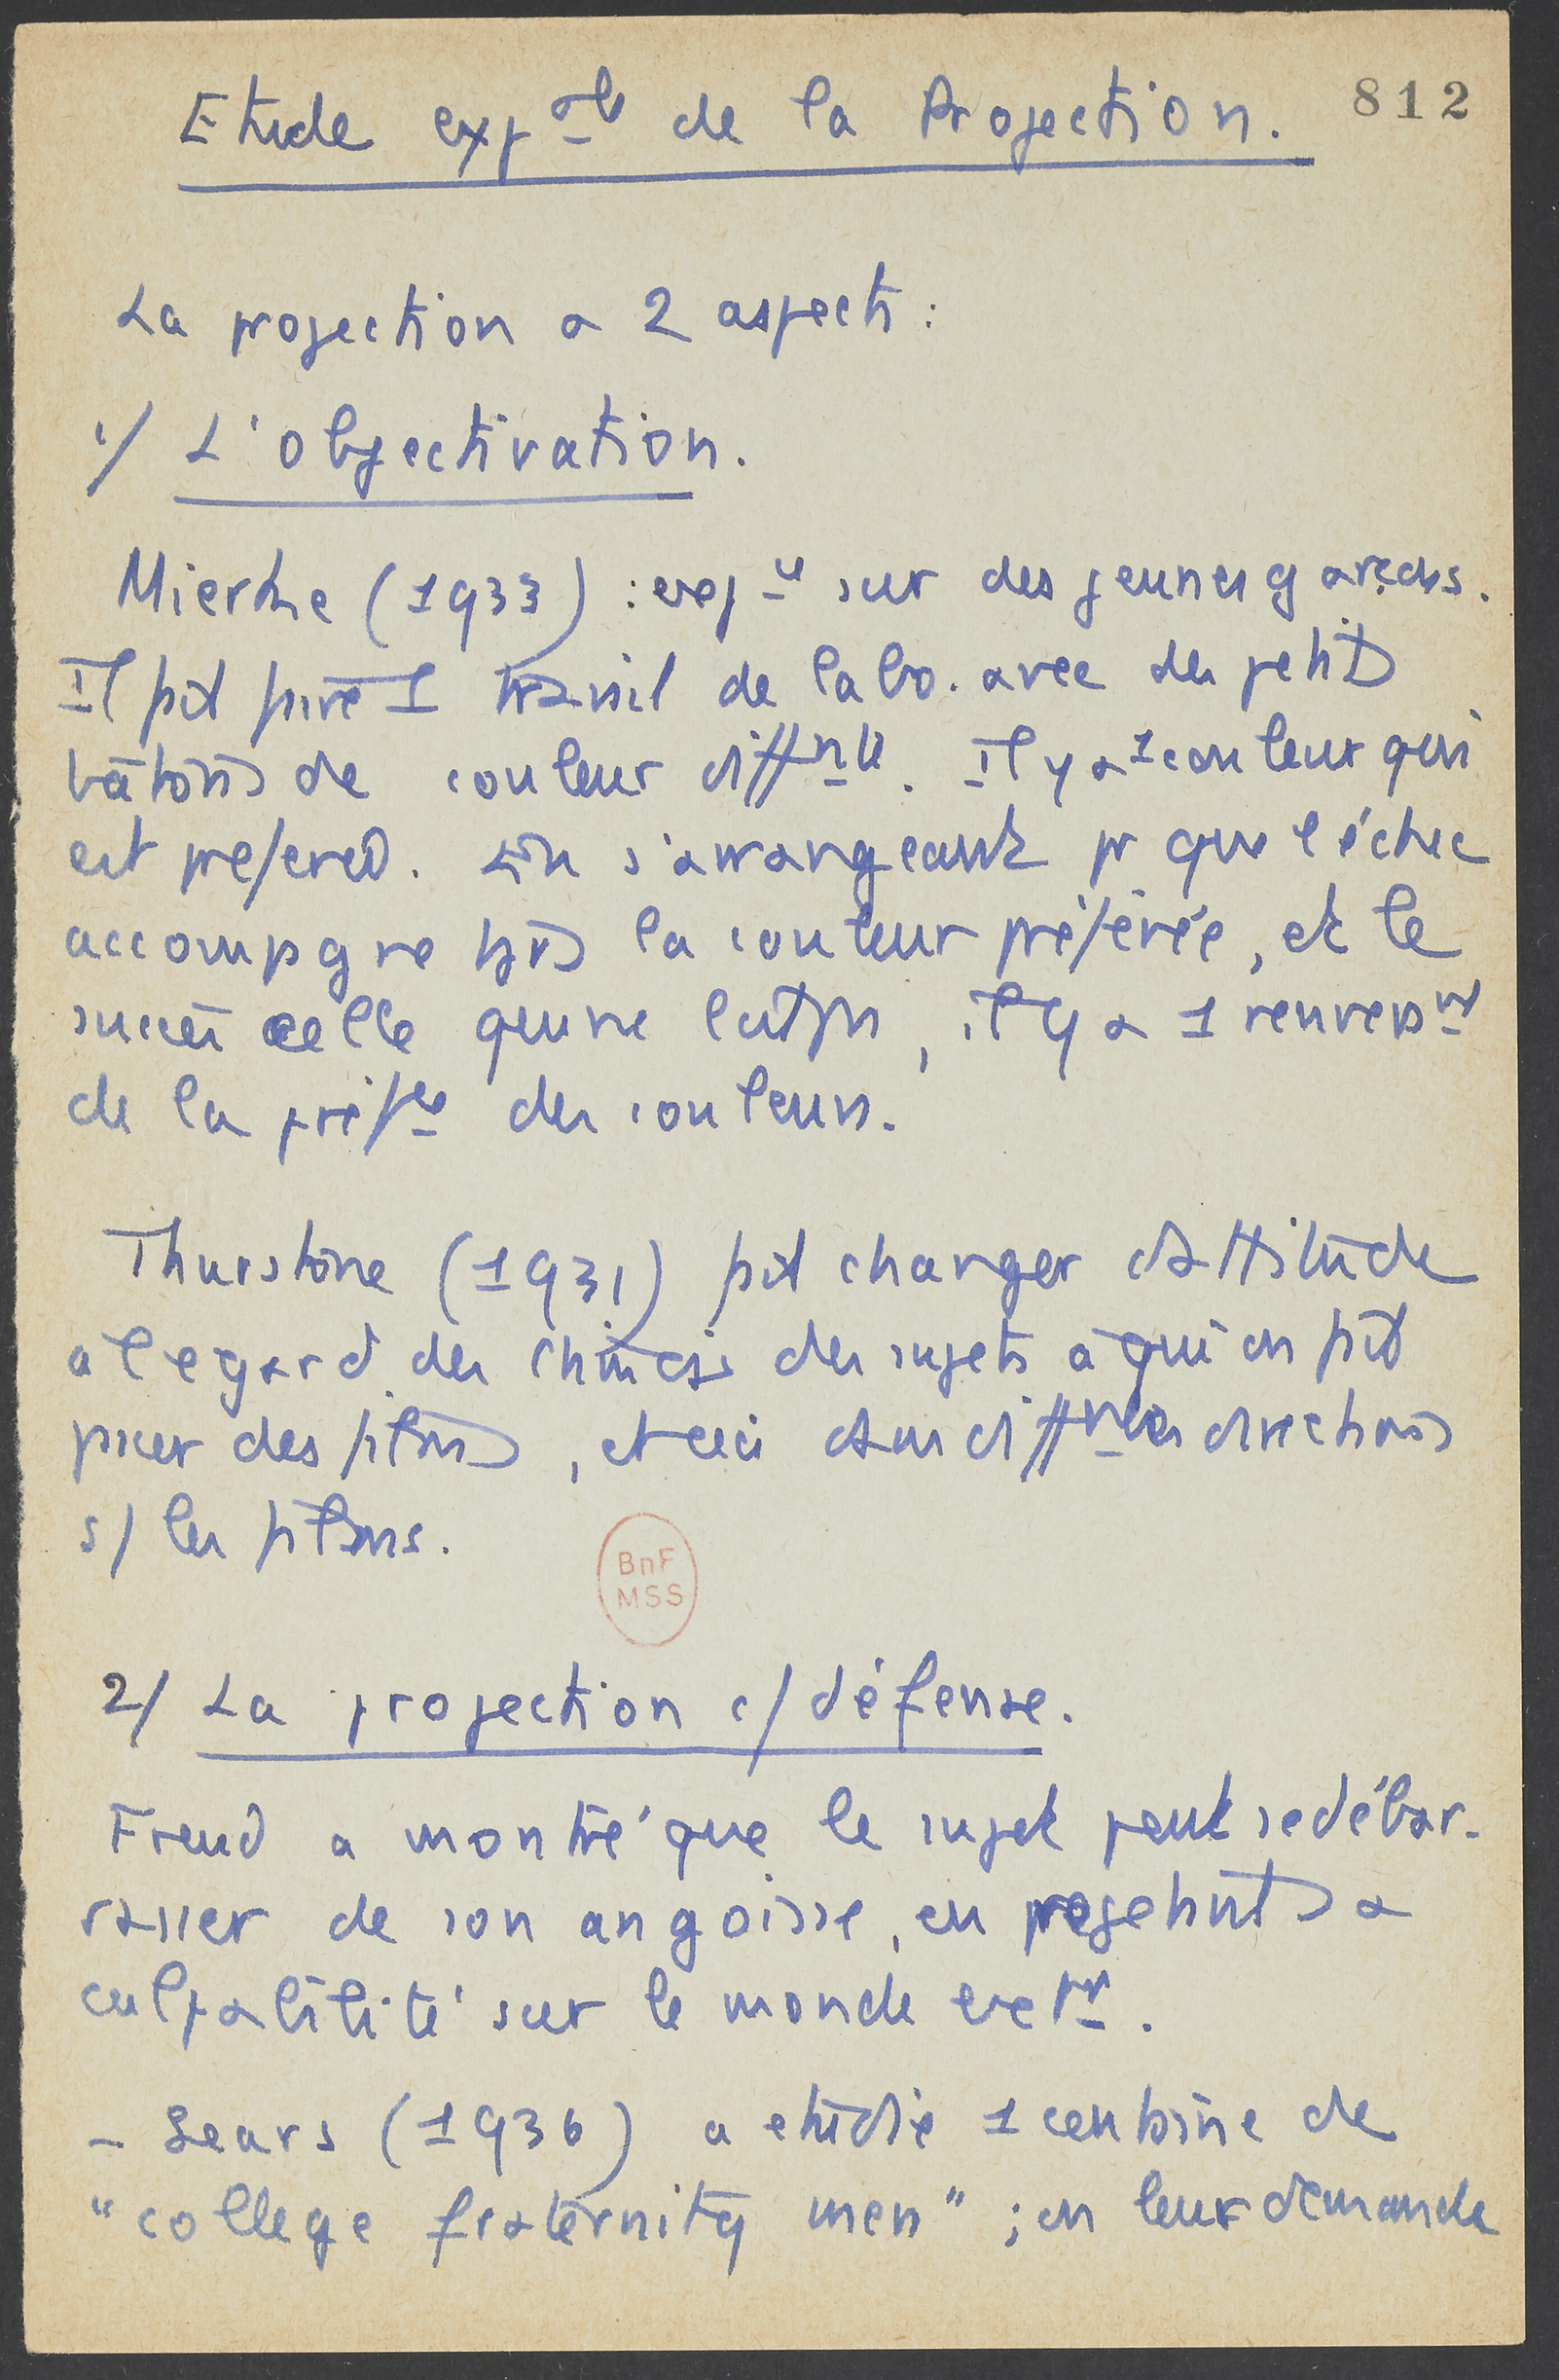 812
Etude expale de la Projection.
La projection a 2 aspects :
1/ L'objectivation.
Mierke (1933) : expce sur des jeunes garçons.
Il fait faire 1 travail de labo. avec des petits
bâtons de couleur diffnte. Il y a 1 couleur qui
est préférée. En s'arrangeant pr que l'échec
accompagne tjrs la couleur préférée, et le
succès celle qu'on ne l'est pas, il y a 1 renversnt
de la préfce des couleurs.
Thurstone (1931) fait changer d'attitude
a l'egard des Chinois des sujets à qui on fait
passer des films, et ceci dans diffntes directions
s/ les films.
BnF
MSS
2/ La projection c/ défense.
Freud a montré que le sujet peut se débar-
rasser de son angoisse, en projetant sa
culpabilité sur le monde extr.
- Sears (1936) a etudié 1 centaine de
"college fraternity men" ; on leur demande